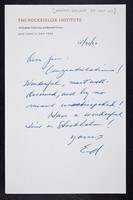 THE ROCKEFELLER INSTITUTE
NEW YORK 21, NEW YORK
Dear Jim:
Congratulations!
Wonderful, most well-
deserved, and by no
means unexpected!
Have a wonderful
time in Stockholm!
Yours
Ed